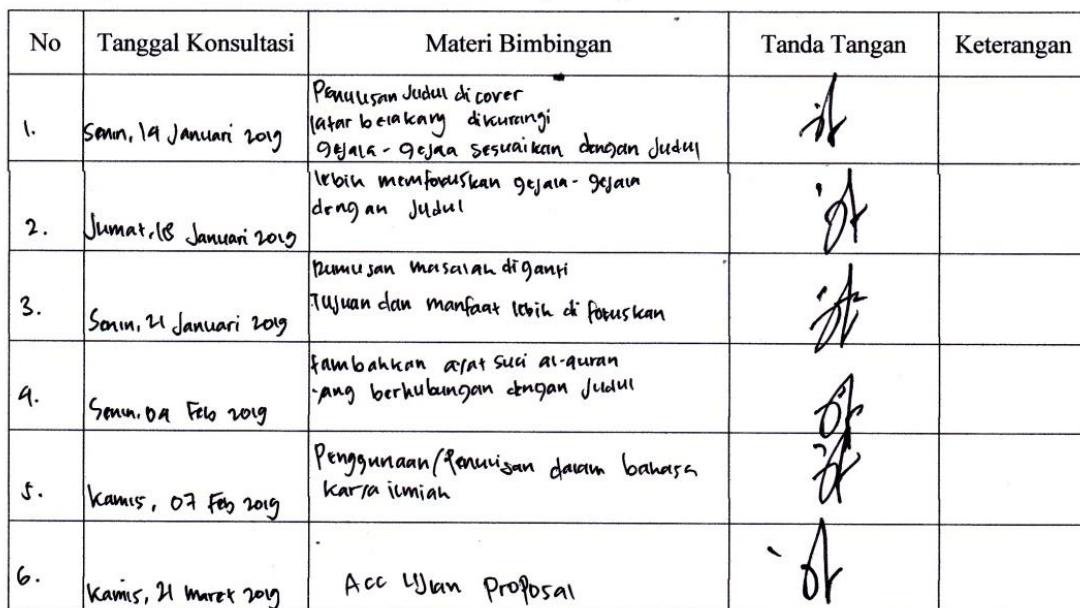 No Tanggal Konsultasi Materi Bimbingan Tanda Tangan Keterangan
1. Senin, 14 Januari 2019 Penulisan Judul di cover
latar belakang dikurangi
gejala - gejaa sesuaikan dengan Judul
2. Jumat, 18 Januari 2019 lebih memfokuskan gejala - gejala
dengan Judul
3. Senin, 21 Januari 2019 Rumusan masalah diganti
Tujuan dan manfaat lebih di fokuskan
4. Senin, 04 Feb 2019 tambahkan ayat suci al-quran
yang berhubungan dengan Judul
5. Kamis, 07 Feb 2019 Penggunaan/Penulisan dalam bahasa
karya ilmiah
6. Kamis, 21 Maret 2019 Acc Ujian Proposal